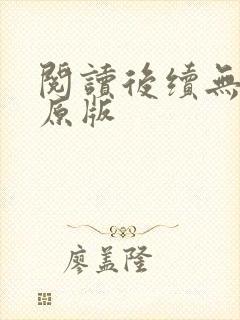 閱讀後續無
原版
廖盖隆